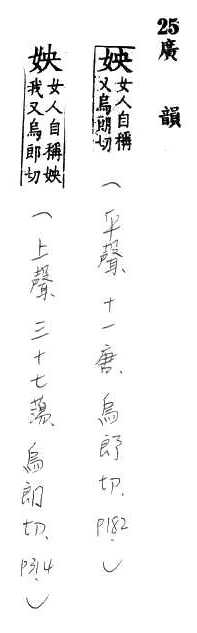 25 廣韻
姎 女人自稱
又烏朗切
(平聲、十一唐、烏郎切、P182.)
姎 女人自稱姎
我又烏郎切
(上聲、三十七蕩、烏朗切、P314.)